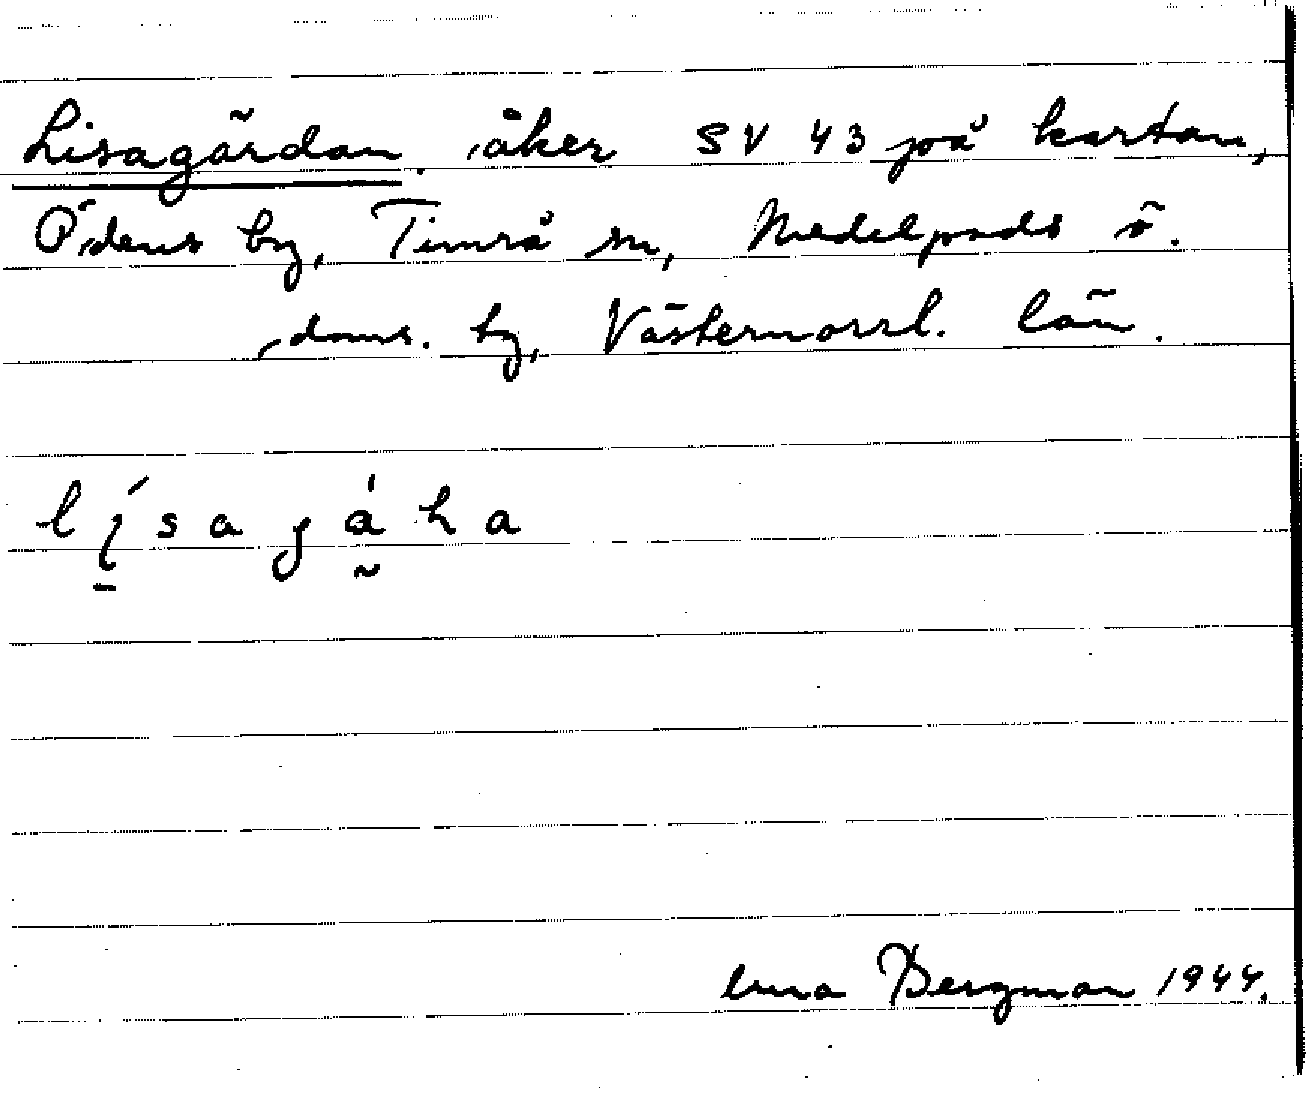 Lisagärdan, åker SV 43 på kartan,
Ödens by, Timrå sn, Medelpads ö.
doms. by, Västernorrl. län.
lisagäka
Bergman 1944.